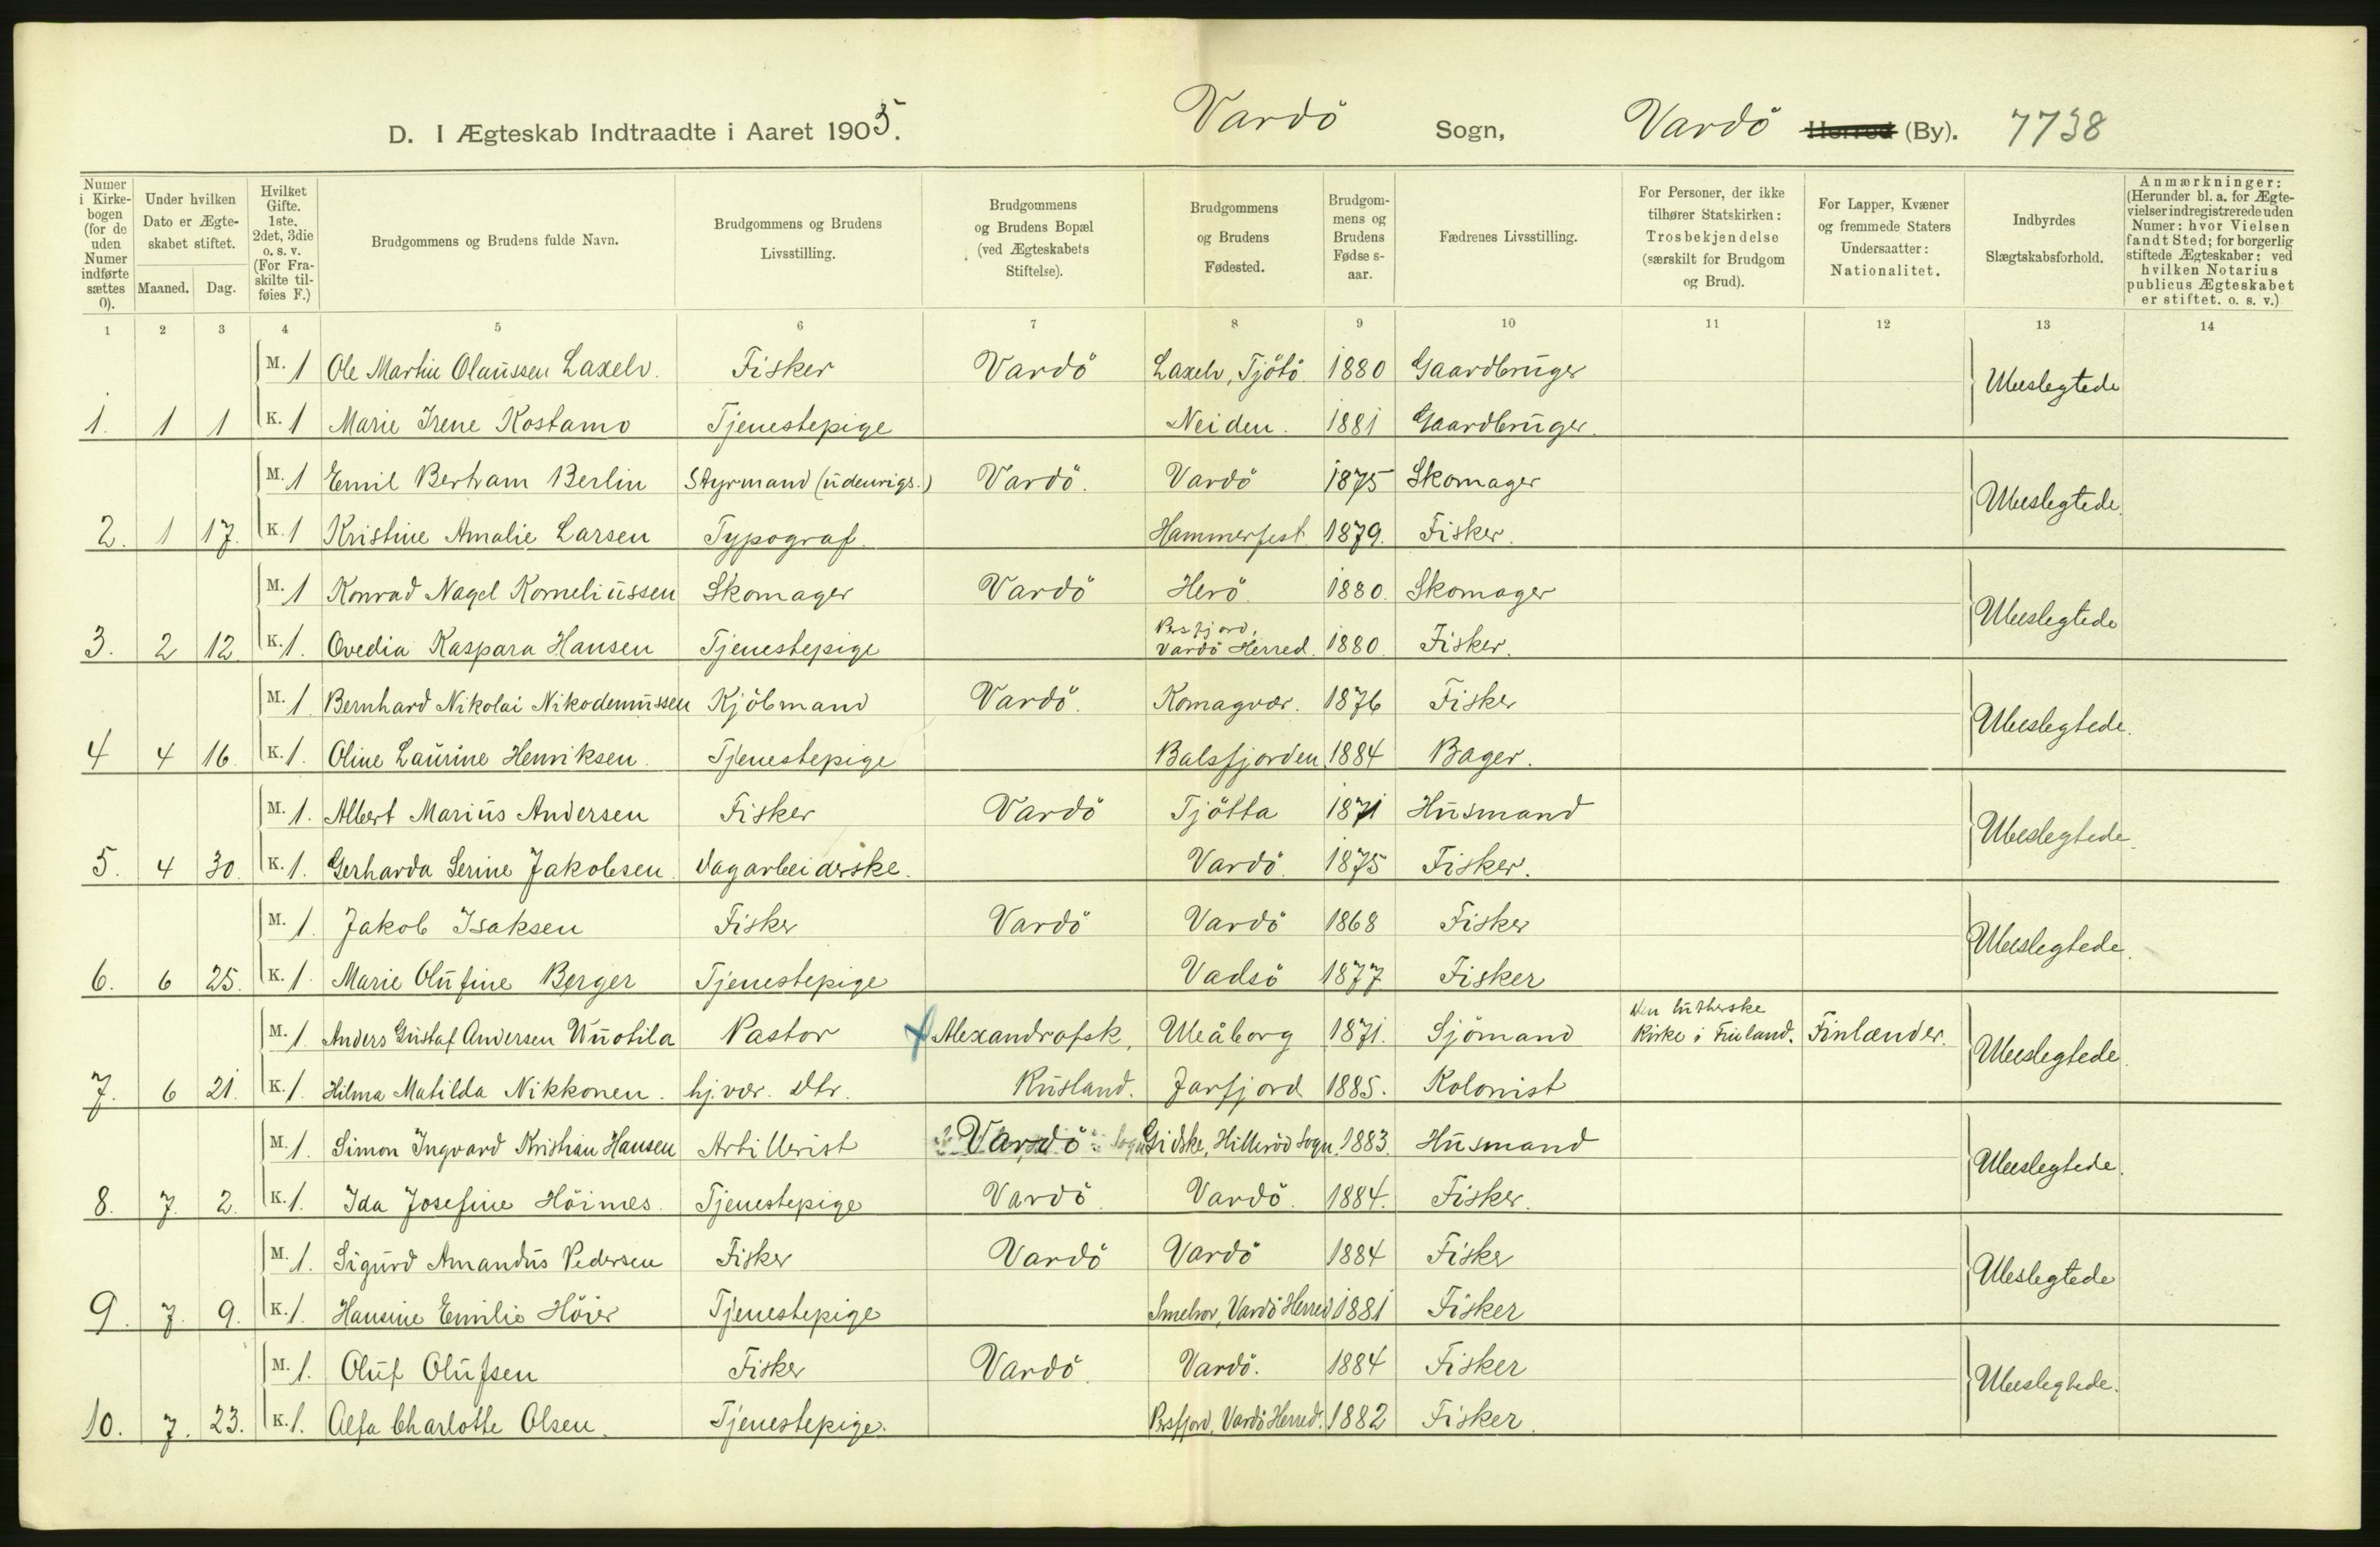 D. I Ægteskab Indtraadte i Aaret 1905. Vardö Sogn, Vardö Herred (By). 7738
Numer i Kirke-bogen (for de uden Numer indførte sættes 0). Under hvilken Dato er Ægte-skabet stiftet. Maaned. Dag. Hvilket Gifte. 1ste. 2det, 3die o. s. v. (For Fra-skilte til-føies F.) Brudgommens og Brudens fulde Navn. Brudgommens og Brudens Livsstilling. Brudgommens og Brudens Bopæl (ved Ægteskabets Stiftelse). Brudgommens og Brudens Fødested. Brudgom-mens og Brudens Fødse s-aar. Fædrenes Livsstilling. For Personer, der ikke tilhører Statskirken: Trosbekjendelse (særskilt for Brudgom og Brud). For Lapper, Kvæner og fremmede Staters Undersaatter: Nationalitet. Indbyrdes Slægtskabsforhold. Anmærkninger: (Herunder bl. a. for Ægte-vielser indregistrerede uden Numer: hvor Vielsen fandt Sted; for borgerlig stiftede Ægteskaber: ved hvilken Notarius publicus Ægteskabet er stiftet. o. s. v.)
1 2 3 4 5 6 7 8 9 10 11 12 13 14
M. 1 Ole Martin Olaussen Laxelv. Fisker Vardö Laxelv, Tjötö. 1880 Gaardbruger Ubeslegtede
1. 1 1 K. 1 Marie Irene Kostamo Tjenestepige Neiden. 1881 Gaardbruger.
M. 1 Emil Bertram Berlin Styrmand (udenrigs.) Vardö. Vardö 1875 Skomager Ubeslegtede.
2. 1 17. K. 1 Kristine Amalie Larsen Typograf. Hammerfest 1879. Fisker.
M. 1 Konrad Nagel Korneliussen Skomager Vardö Herö. 1880. Skomager Ubeslegtede
3. 2 12. K. 1. Ovedia Kaspara Hansen Tjenestepige Persfjord, Vardö Herred. 1880. Fisker.
M. 1. Bernhard Nikolai Nikodemussen Kjöbmand Vardö. Komagvær. 1876 Fisker Ubeslegtede.
4 4 16. K. 1. Oline Laurine Henriksen. Tjenestepige Balsfjorden. 1884 Bager.
M. 1. Albert Marius Andersen Fisker Vardö Tjötta 1871 Husmand Ubeslegtede.
5. 4 30. K. 1. Gerharda Serine Jakobsen. Dagarbeiderske. Vardö. 1875 Fisker.
M. 1. Jakob Isaksen Fisker Vardö Vardö 1868 Fisker Ubeslegtede.
6. 6 25. K. 1. Marie Olufine Berger Tjenestepige Vadsö 1877 Fisker
M. 1. Anders Gustaf Andersen Wuotila Pastor Alexandrofsk, Uleåborg 1871. Sjömand Den lutherske Kirke i Finland. Finlænder. Ubeslegtede.
7. 6 21. K. 1. Hilma Matilda Nikkonen. hj. vær. Dtr. Rusland. Jarfjord 1885. Kolonist
M. 1. Simon Ingvard Kristian Hansen Artillerist Vardö Gidske, Hilleröd Sogn. 1883. Husmand Ubeslegtede.
8. 7. 2. K. 1. Ida Josefine Höines. Tjenestepige Vardö. Vardö. 1884. Fisker.
M. 1. Sigurd Amandus Pedersen Fisker Vardö Vardö 1884 Fisker Ubeslegtede
9. 7. 9. K. 1. Hansine Emilie Höier Tjenestepige Smelror, Vardö Herred 1881 Fisker
M. 1. Oluf Olufsen Fisker Vardö. Vardö. 1884 Fisker Ubeslegtede.
10. 7. 23. K. 1. Alfa Charlotte Olsen. Tjenestepige. Persfjord, Vardö Herred. 1882 Fisker.